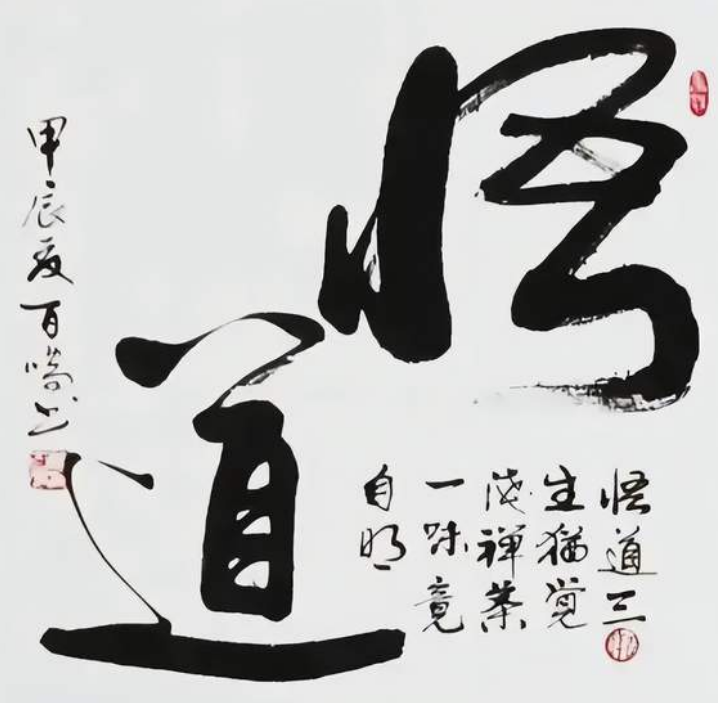 悟
道
悟道三
生猶觉
浅禅茶
一味竟
自明
甲辰夏百喻书